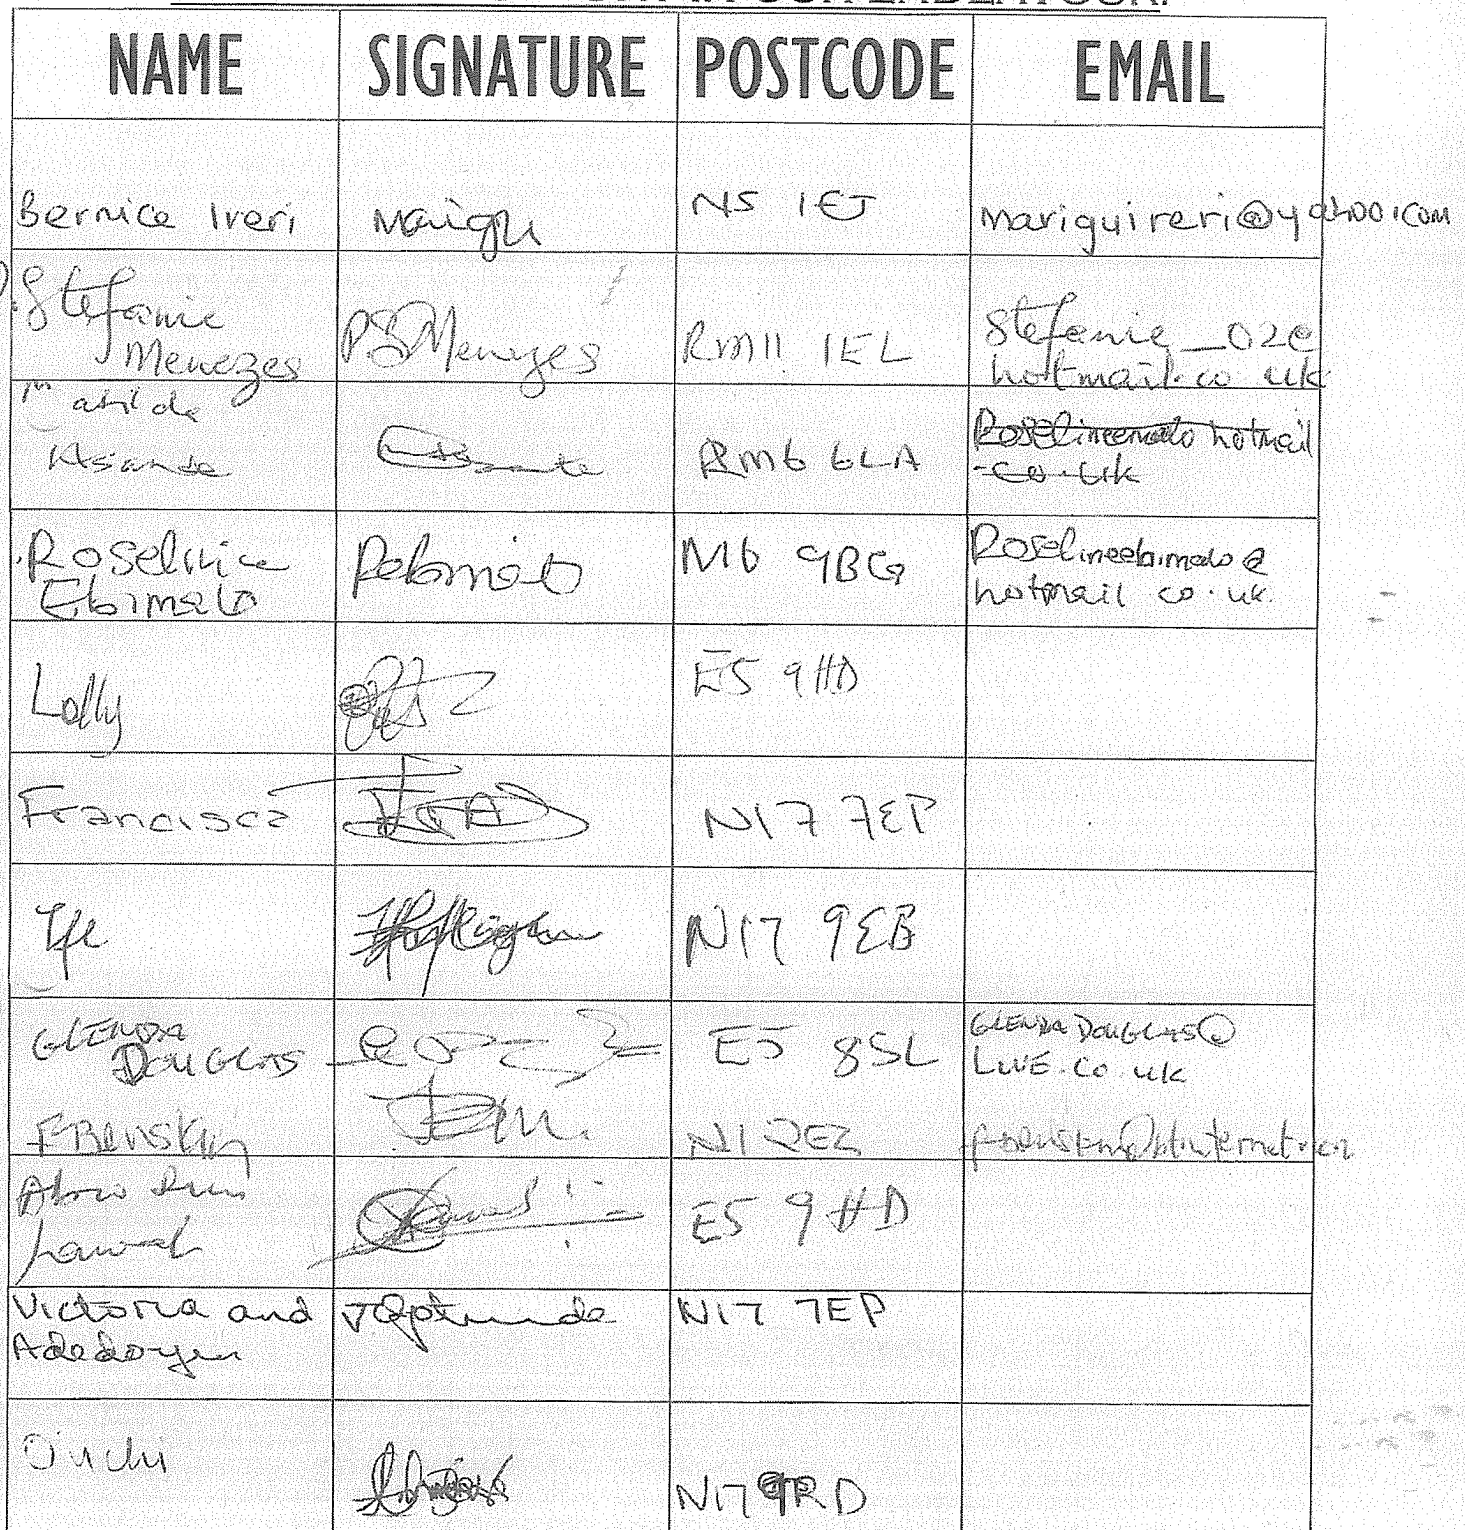 NAME SIGNATURE POSTCODE EMAIL
Bernice Ireri N5 1EJ mariguireri@yahoo.com
Stefanie
Menezes PSMenezes RM11 1EL Stefanie_02@
hotmail.co uk
Matilda
Asante Asante RM6 6LA
-co-uk
Roseline
Ebimalo N16 9BG Roselineebimalo@
hotmail co.uk.
Lolly E5 9HD
Francisca N17 7EP
Ife N17 9EB
GLENDA
DOUGLAS E5 8SL GLENDA DOUGLAS@
LIVE.co uk
N1 2EZ
Lawal E5 9HD
Victoria and N17 7EP
Adedoyin
N17 9RD